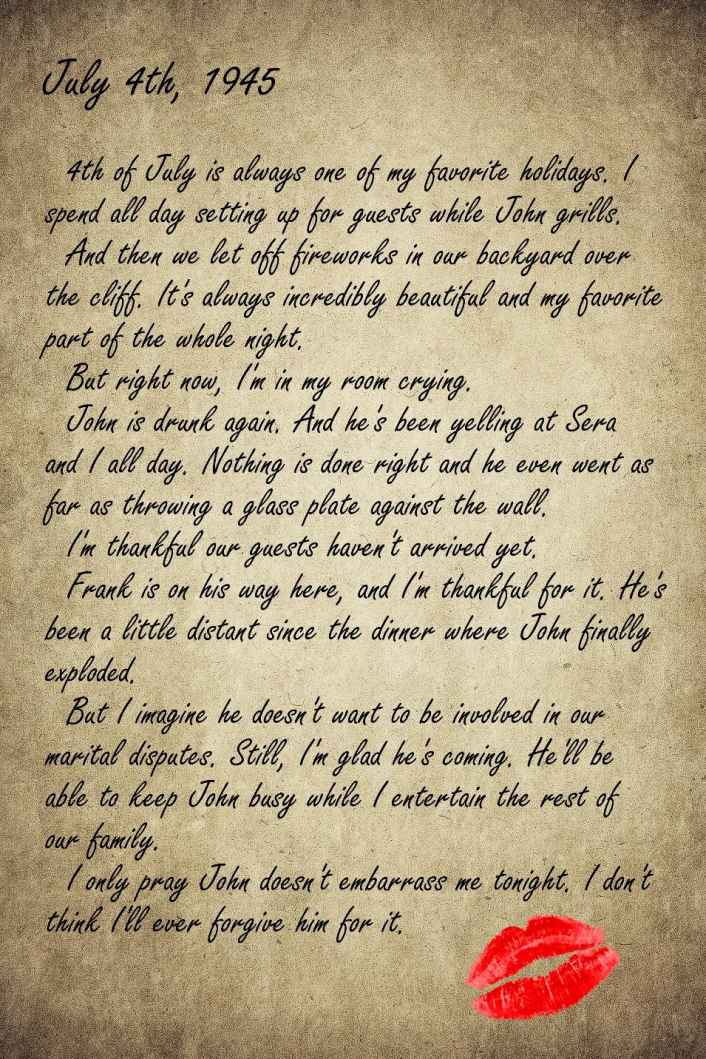 July 4th, 1945
4th of July is always one of my favorite holidays. I
spend all day setting up for guests while John grills.
And then we let off fireworks in our backyard over
the cliff. It's always incredibly beautiful and my favorite
part of the whole night.
But right now, I'm in my room crying.
John is drunk again. And he's been yelling at Sera
and I all day. Nothing is done right and he even went as
far as throwing a glass plate against the wall.
I'm thankful our guests haven't arrived yet.
Frank is on his way here, and I'm thankful for it. He's
been a little distant since the dinner where John finally
exploded.
But I imagine he doesn't want to be involved in our
marital disputes. Still, I'm glad he's coming. He'll be
able to keep John busy while I entertain the rest of
our family.
I only pray John doesn't embarrass me tonight. I don't
think I'll ever forgive him for it.